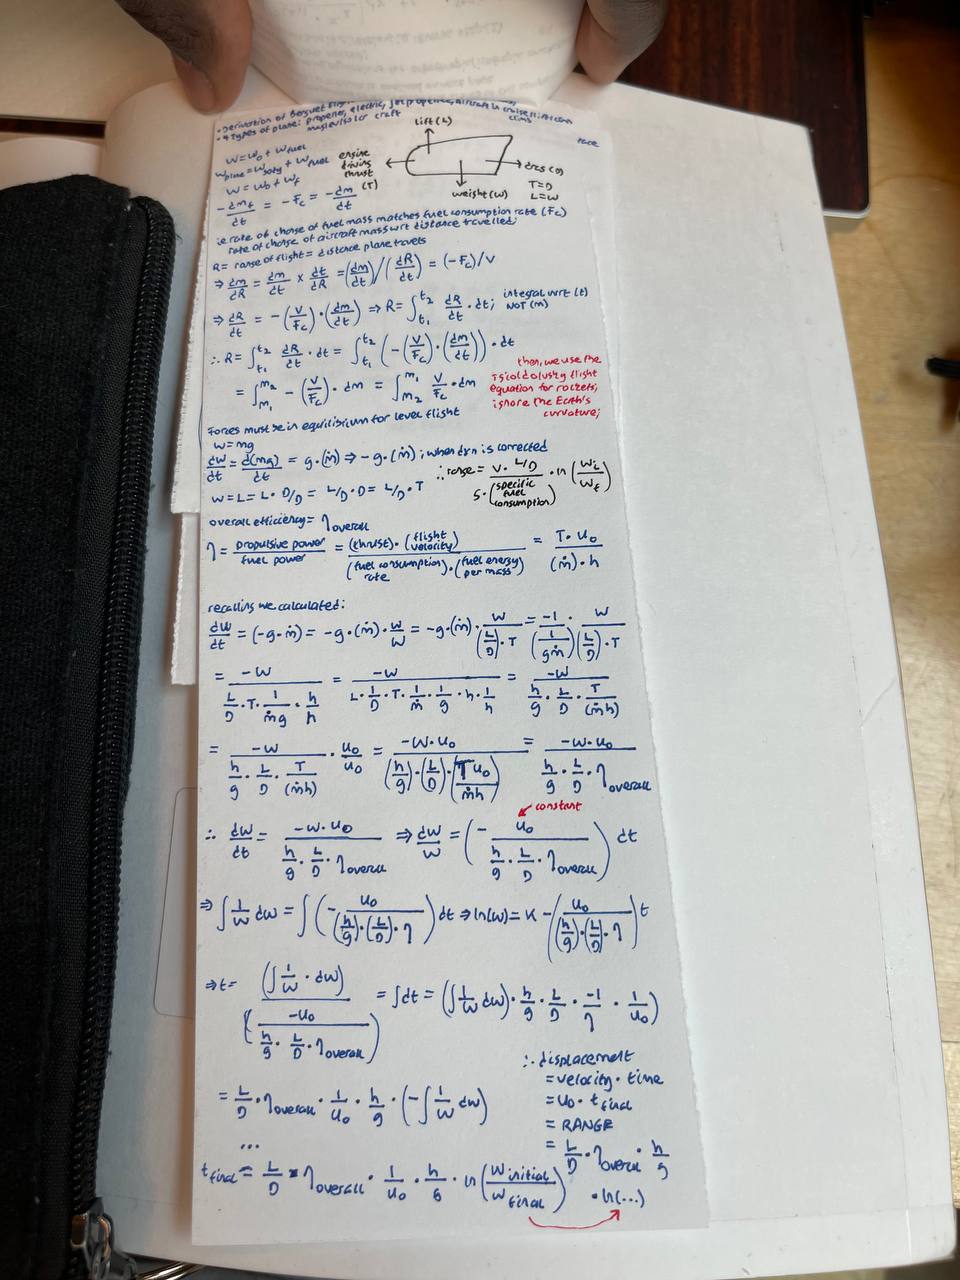 • Derivation of Breguet
• 4 types of plane: propeller, electric, jet propelled, aircraft in cruise flight
W = W₀ + W_fuel
W_plane = W_body + W_fuel
W = W_b + W_f
lift (L)
engine driving thrust (T)
drag (D)
weight (W)
T=D
L=W
-dm_f/dt = -F_c = -dm/dt
i.e rate of change of fuel mass matches fuel consumption rate (F_c)
rate of change of aircraft mass wrt distance travelled;
R = range of flight = distance plane travels
⇒ dm/dR = dm/dt × dt/dR = (dm/dt)/(dR/dt) = (-F_c)/V
⇒ dR/dt = -(V/F_c)·(dm/dt) ⇒ R = ∫_{t₁}^{t₂} dR/dt · dt; integral wrt (t) NOT (m)
∴ R = ∫_{t₁}^{t₂} dR/dt · dt = ∫_{t₁}^{t₂} (-(V/F_c)·(dm/dt)) · dt
= ∫_{m₁}^{m₂} -(V/F_c) · dm = ∫_{m₂}^{m₁} V/F_c · dm
then, we use the
Tsiolkolvsky flight
equation for rockets;
ignore the Earth's
curvature;
Forces must be in equilibrium for level flight
W = mg
dW/dt = d(mg)/dt = g·(ṁ) ⇒ -g·(ṁ); when dxn is corrected
W = L = L · D/D = L/D · D = L/D · T
∴ range = V · L/D / S·(specific fuel consumption) · ln(W_i/W_f)
overall efficiency = η_overall
η = propulsive power / fuel power = (thrust)·(flight velocity) / (fuel consumption rate)·(fuel energy per mass) = T·u₀ / (ṁ)·h
recalling we calculated:
dW/dt = (-g·ṁ) = -g·(ṁ)·W/W = -g·(ṁ)· W/((L/D)·T) = -1/(1/gṁ) · W/((L/D)·T)
= -W / (L/D · T · 1/ṁg · h/h) = -W / (L · 1/D · T · 1/ṁ · 1/g · h · 1/h) = -W / (h/g · L/D · T/(ṁh))
= -W / (h/g · L/D · T/(ṁh)) · u₀/u₀ = -W·u₀ / ((h/g)·(L/D)·(Tu₀/ṁh)) = -W·u₀ / (h/g · L/D · η_overall)
constant
∴ dW/dt = -W·u₀ / (h/g · L/D · η_overall) ⇒ dW/W = (- u₀ / (h/g · L/D · η_overall)) dt
⇒ ∫ 1/W dW = ∫ (- u₀ / ((h/g)·(L/D)·η)) dt ⇒ ln(W) = K - (u₀ / ((h/g)·(L/D)·η)) t
⇒ t = (∫ 1/W · dW) / (-u₀ / (h/g · L/D · η_overall)) = ∫dt = (∫ 1/W dW) · h/g · L/D · -1/η · 1/u₀)
= L/D · η_overall · 1/u₀ · h/g · (-∫ 1/W dW)
...
t_final = L/D · η_overall · 1/u₀ · h/g · ln(W_initial/W_final)
∴ displacement
= velocity · time
= u₀ · t_final
= RANGE
= L/D · η_overall · h/g
· ln(...)